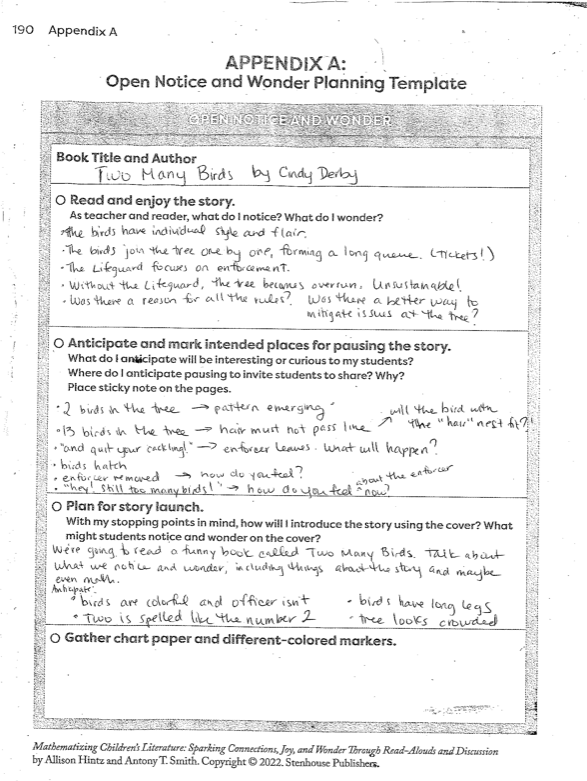 190 Appendix A
APPENDIX A:
Open Notice and Wonder Planning Template
OPEN NOTICE AND WONDER
Book Title and Author
Two Many Birds by Cindy Derby
O Read and enjoy the story.
As teacher and reader, what do I notice? What do I wonder?
• The birds have individual style and flair.
• The birds join the tree one by one, forming a long queue. (Tickets!)
• The Lifeguard focuses on enforcement.
• Without the Lifeguard, the tree becomes overrun, Unsustainable!
• Was there a reason for all the rules? Was there a better way to
mitigate issues at the tree?
O Anticipate and mark intended places for pausing the story.
What do I anticipate will be interesting or curious to my students?
Where do I anticipate pausing to invite students to share? Why?
Place sticky note on the pages.
• 2 birds in the tree → pattern emerging
• 13 birds in the tree → hair must not pass line ↗ will the bird with the "hair" nest fit?!
• "and quit your cackling!" → enforcer leaves. What will happen?
• birds hatch
• enforcer removed → how do you feel?
• "hey! Still too many birds!" → how do you feel about the enforcer now?
O Plan for story launch.
With my stopping points in mind, how will I introduce the story using the cover? What
might students notice and wonder on the cover?
We're going to read a funny book called Two Many Birds. Talk about
what we notice and wonder, including things about the story and maybe
even math.
Anticipate:
• birds are colorful and officer isn't • birds have long legs
• Two is spelled like the number 2 • tree looks crowded
O Gather chart paper and different-colored markers.
Mathematizing Children's Literature: Sparking Connections, Joy, and Wonder Through Read-Alouds and Discussion
by Allison Hintz and Antony T. Smith. Copyright © 2022. Stenhouse Publishers.